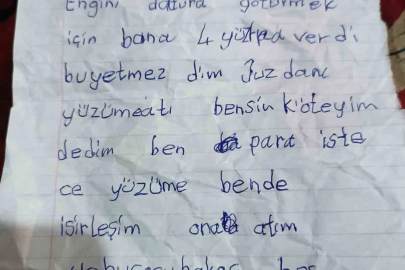 Engini datura götürmek
için bana 4 yüz para verdi
buyetmez dim Juzdanı
yüzümeatı bensin köteyim
dedim ben para iste
ce yüzüme bende
isirleşim ona atım